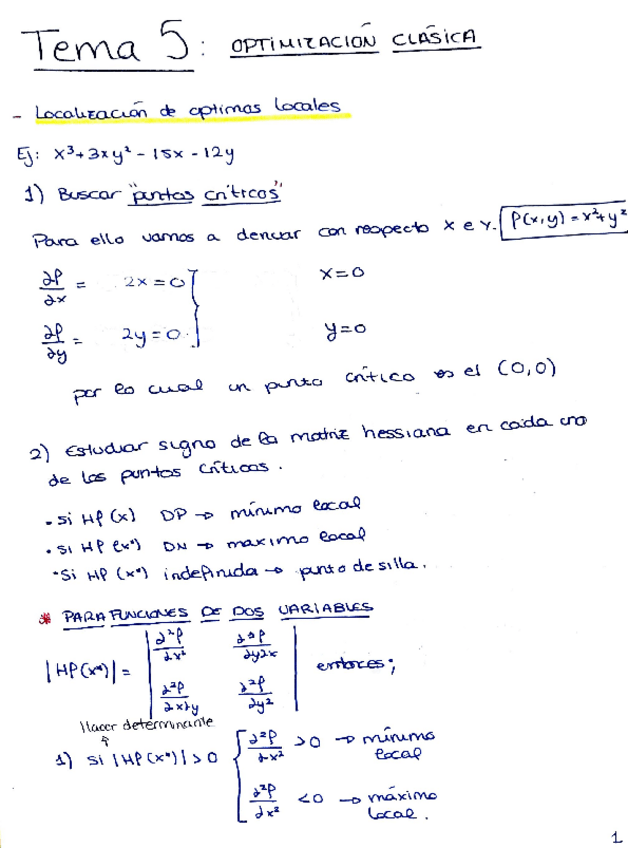 Tema 5: OPTIMIZACIÓN CLÁSICA
- Localización de optimas locales
Ej: x³+3xy²-15x-12y
1) Buscar "puntos críticos"
Para ello vamos a derivar con respecto x e y. f(x,y)=x²+y²
∂f/∂x = 2x=0 } x=0
∂f/∂y = 2y=0 } y=0
por lo cual un punto crítico es el (0,0)
2) Estudiar signo de la matriz hessiana en cada uno
de los puntos críticos.
• si Hf(x) DP → mínimo local
• si Hf(x*) DN → maximo local
• Si Hf(x*) indefinida → punto de silla.
* PARA FUNCIONES DE DOS VARIABLES
|Hf(x*)| = | ∂²f/∂x² ∂²f/∂y∂x |
| ∂²f/∂x∂y ∂²f/∂y² | entonces;
Hacer determinante
↑
1) si |Hf(x*)|>0 { ∂²f/∂x² >0 → mínimo local
∂²f/∂x² <0 → máximo local.
1